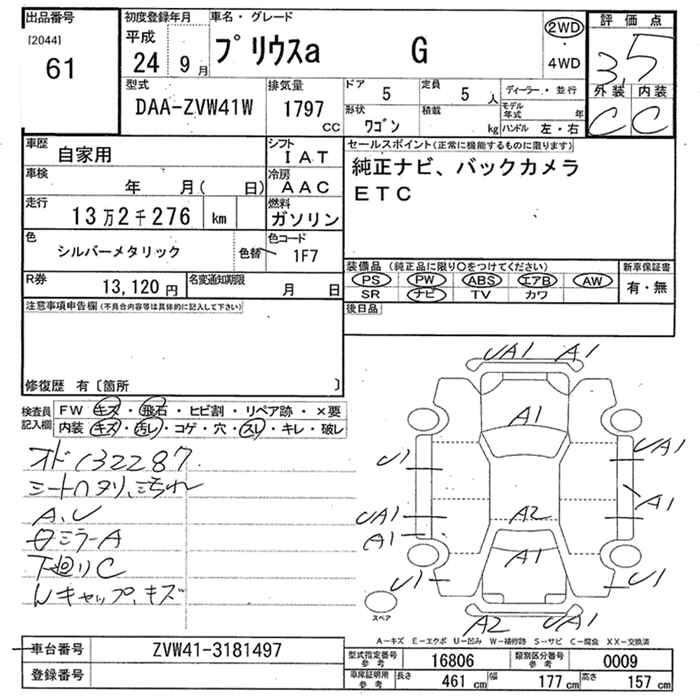 出品番号
[2044]
61
初度登録年月
平成
24 9月
車名・グレード
プリウスa G
2WD
・
4WD
評価点
3.5
外装 内装
C C
型式
DAA-ZVW41W
排気量
1797
CC
ドア 5
定員 5人
形状 ワゴン
積載 kg
ディーラー・並行
モデル年式 年
ハンドル 左・右
車歴 自家用
シフト IAT
車検 年 月( 日)
冷房 AAC
走行 13万2千276 km
燃料 ガソリン
色 シルバーメタリック
色替
色コード 1F7
R券 13,120円
名変通知期限 月 日
セールスポイント(正常に機能するものに限ります)
純正ナビ、バックカメラ
ETC
装備品 (純正品に限り○をつけてください)
PS PW ABS エアB AW
SR ナビ TV カワ
新車保証書
有・無
後日品
注意事項申告欄(不具合内容等は具体的に記入して下さい)
修復歴 有〔箇所 〕
検査員記入欄
FW キズ・飛石・ヒビ割・リペア跡・×要
内装 キズ・汚レ・コゲ・穴・スレ・キレ・破レ
オド132287
シートヘタリ、汚れ
A、U
日ミラーA
下廻りC
Wキャップ、キズ
UA1 A1
A1
U1 UA1
A1
UA1 A2
A1
A1
U1 U1
A2 UA1
スペア
A-キズ E-エクボ U-凹み W-補修跡 S-サビ C-腐食 XX-交換済
車台番号 ZVW41-3181497
登録番号
型式指定番号 参考 16806
類別区分番号 参考 0009
車庫証明用 参考
長さ 461cm 幅 177cm 高さ 157cm